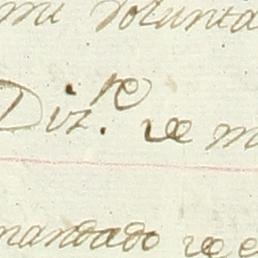 mi volunta
Diz.re de m
mandado de e